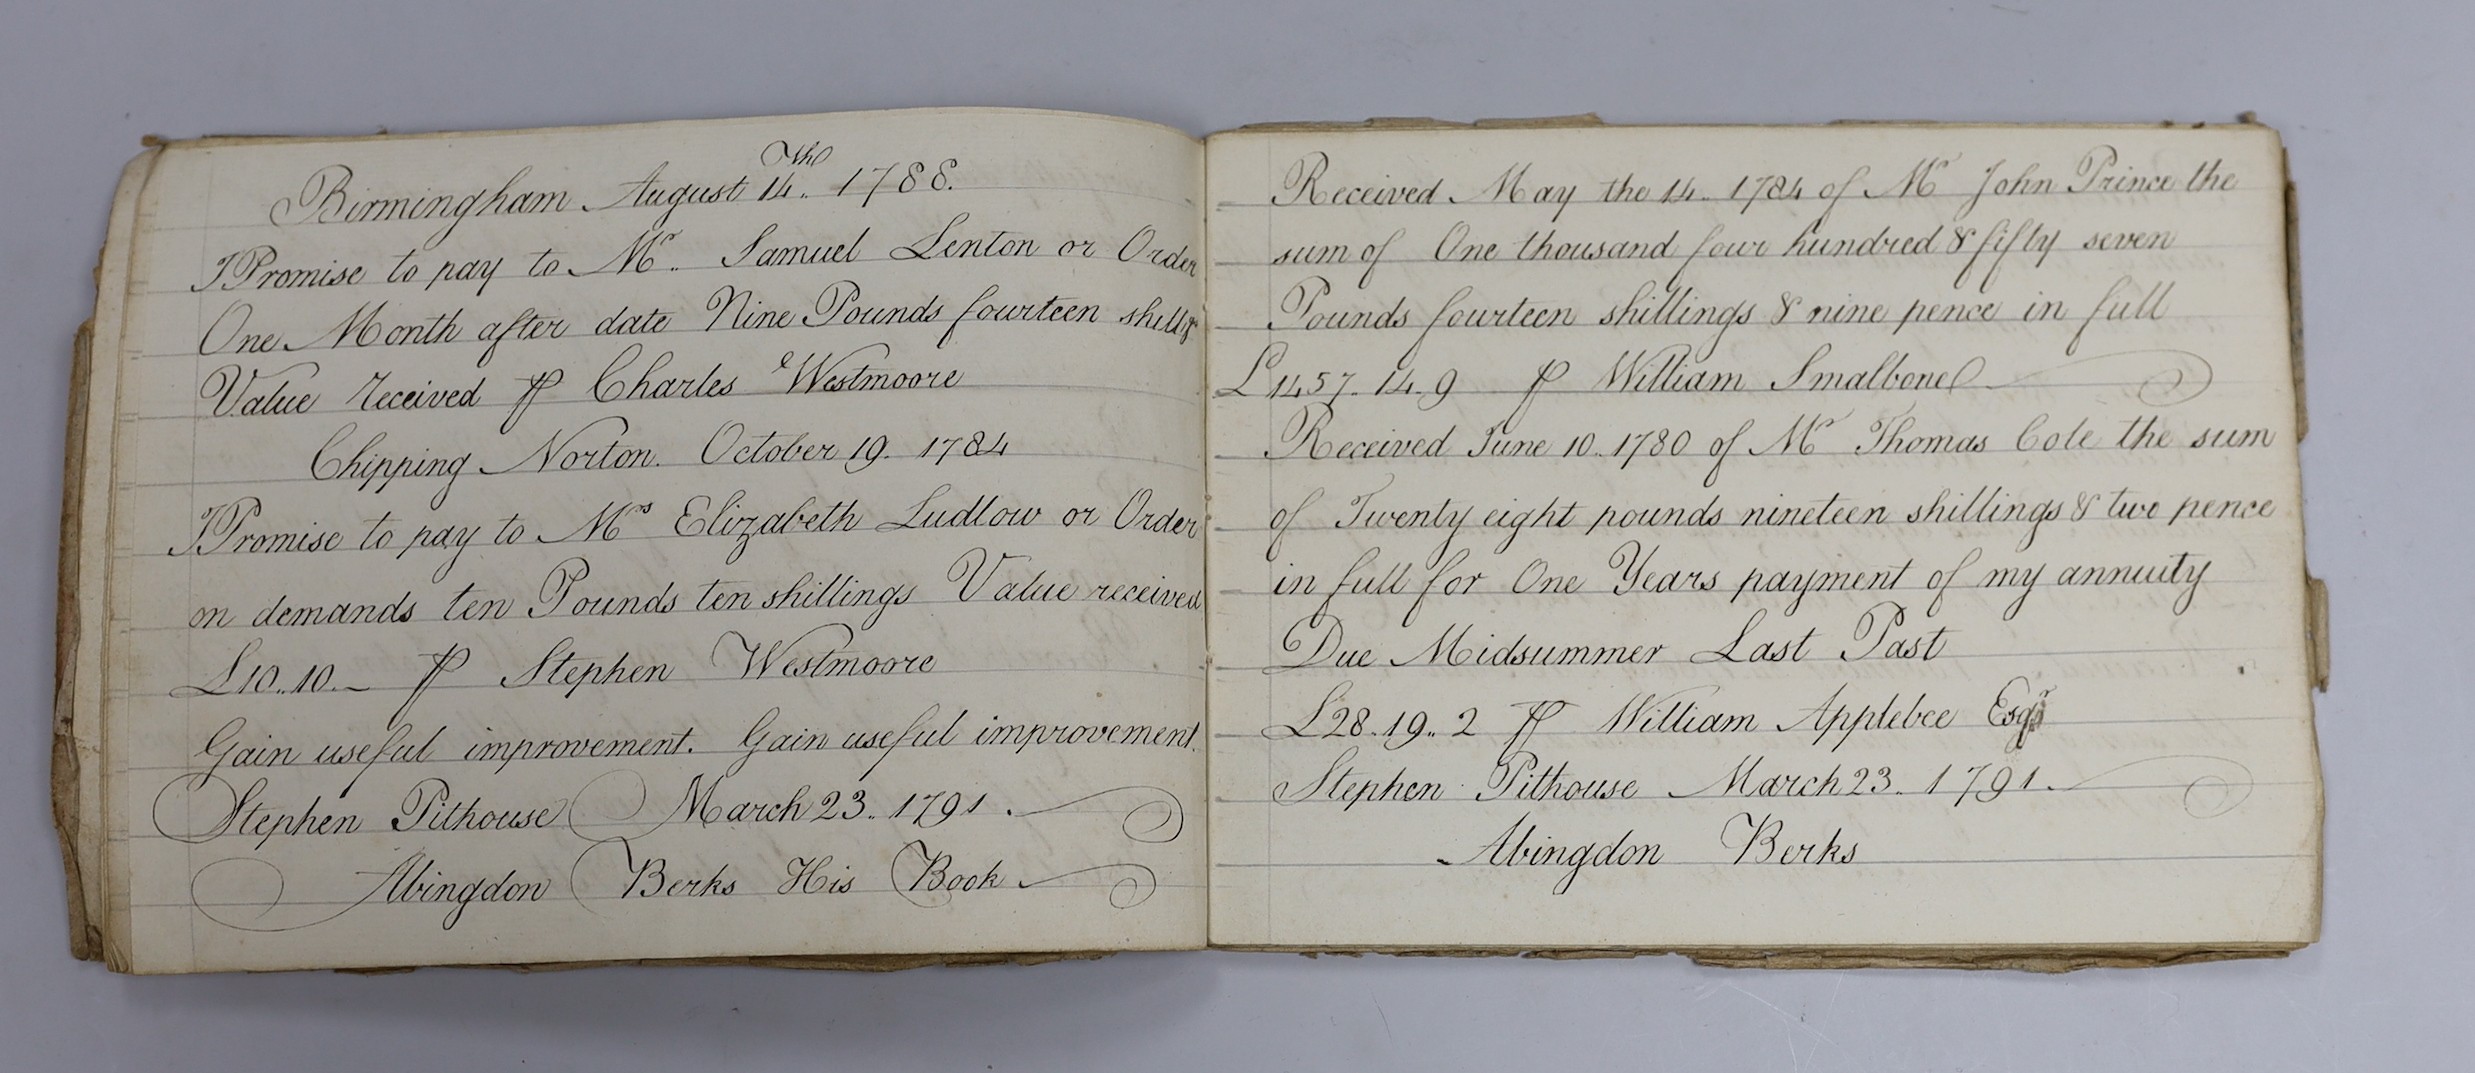 Birmingham August 14th 1788.
I Promise to pay to Mr. Samuel Lenton or Order
One Month after date Nine Pounds fourteen shillgs
Value received ⅌ Charles Westmoore
Chipping Norton. October 19. 1784
I Promise to pay to Mrs Elizabeth Ludlow or Order
on demands ten Pounds ten shillings Value received
£10..10..– ⅌ Stephen Westmoore
Gain useful improvement. Gain useful improvement.
Stephen Pithouse March 23.. 1791.
Abingdon Berks His Book
Received May the 14.. 1784 of Mr John Prince the
sum of One thousand four hundred & fifty seven
Pounds fourteen shillings & nine pence in full
£1457..14..9 ⅌ William Smalbone
Received June 10..1780 of Mr Thomas Cole the sum
of Twenty eight pounds nineteen shillings & two pence
in full for One Years payment of my annuity
Due Midsummer Last Past
£28..19..2 ⅌ William Applebee Esqr
Stephen Pithouse March 23.. 1791.
Abingdon Berks